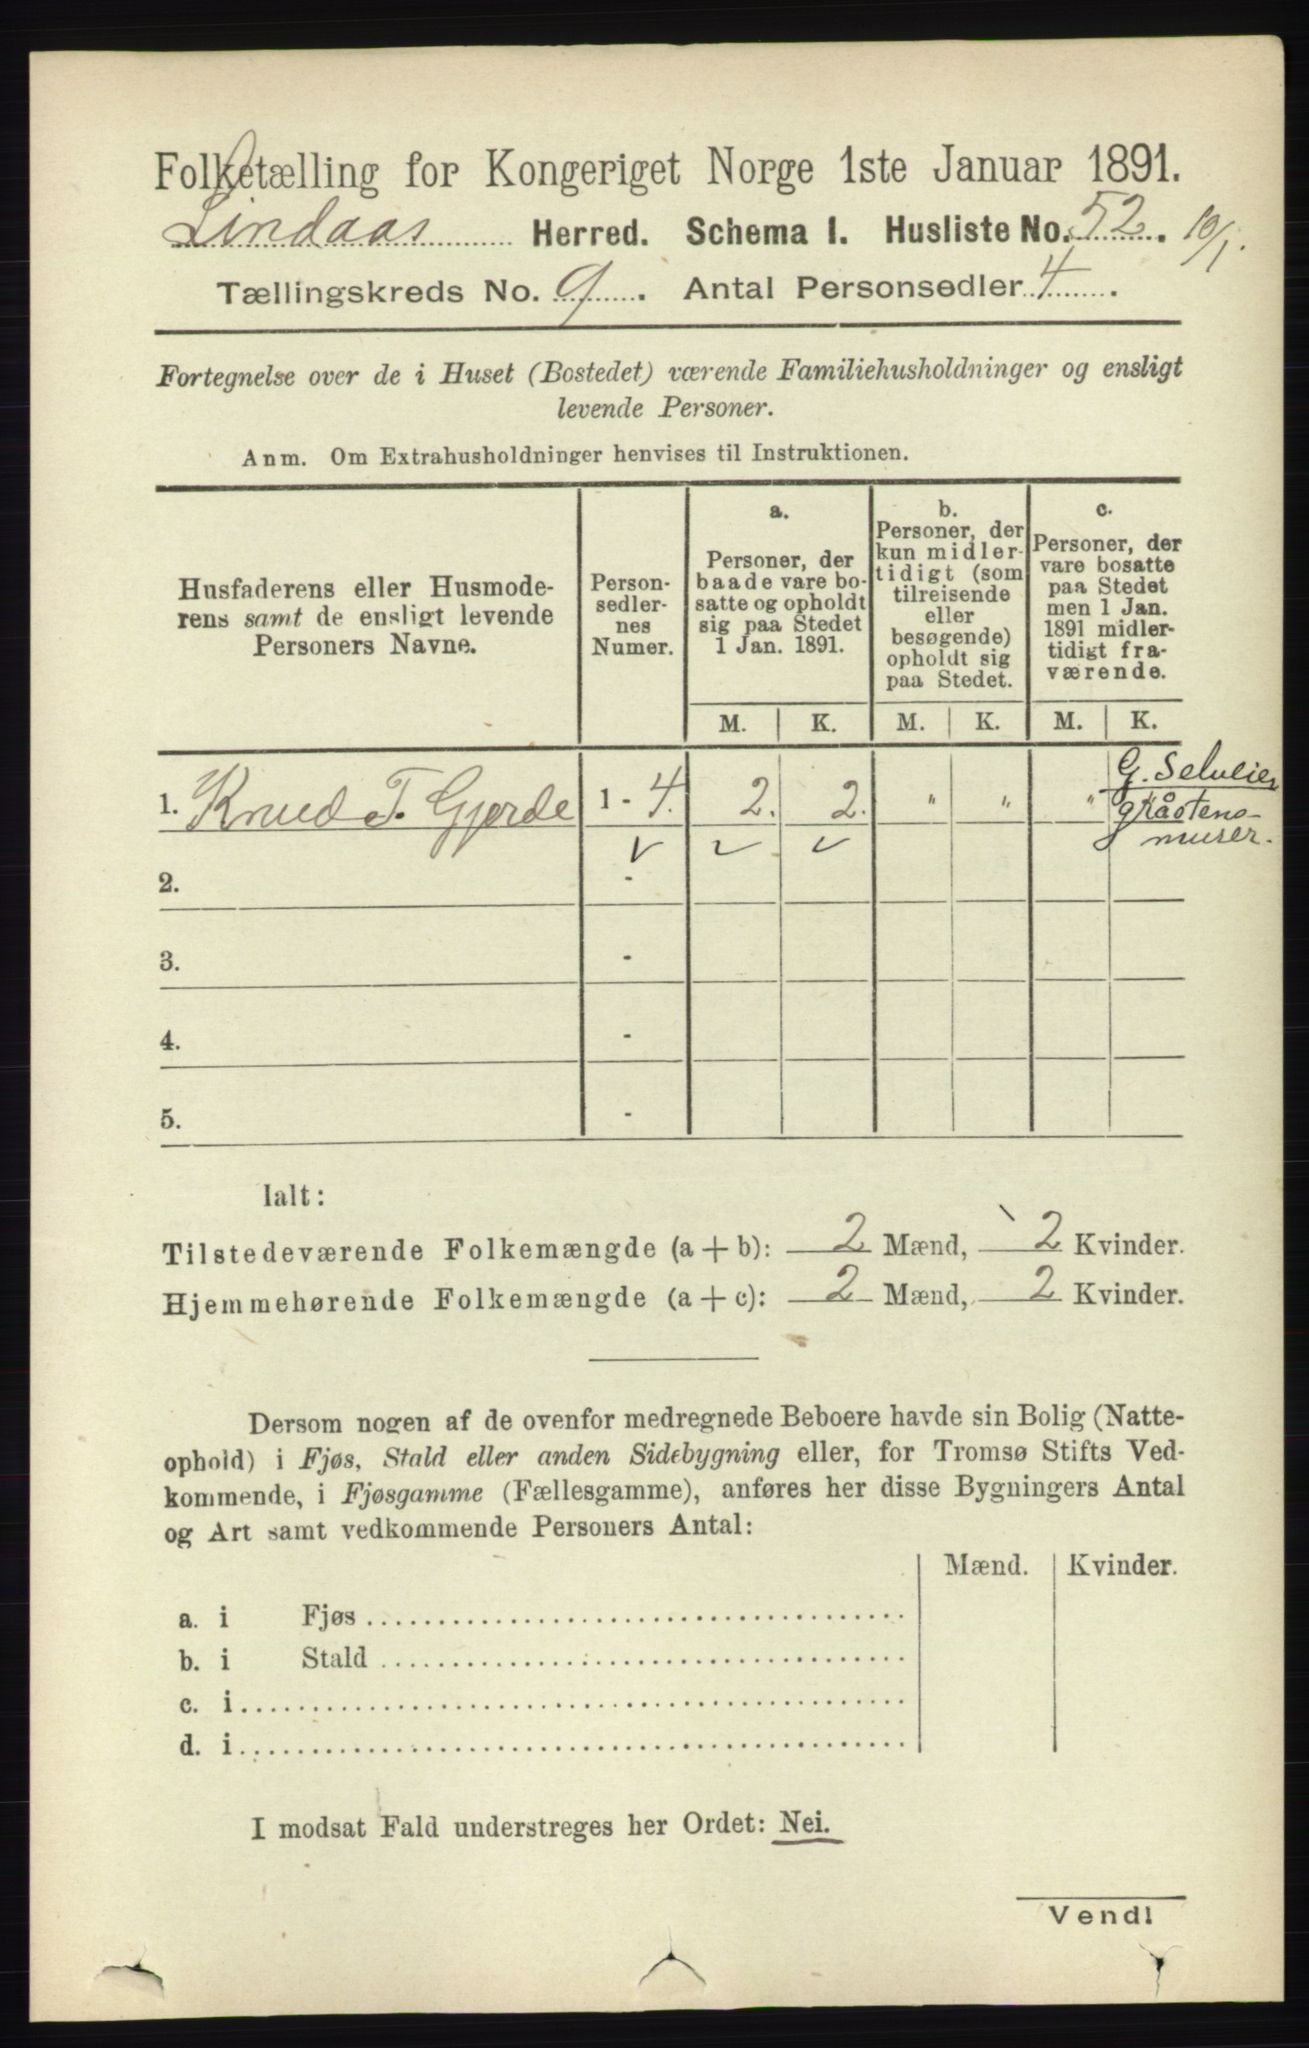 Folketælling for Kongeriget Norge 1ste Januar 1891.
Lindaas Herred. Schema I. Husliste No. 52. 10/1.
Tællingskreds No. 9. Antal Personsedler 4.
Fortegnelse over de i Huset (Bostedet) værende Familiehusholdninger og ensligt
levende Personer.
Anm. Om Extrahusholdninger henvises til Instruktionen.
Husfaderens eller Husmode-
rens samt de ensligt levende
Personers Navne.
Person-
sedler-
nes
Numer.
a.
Personer, der
baade vare bo-
satte og opholdt
sig paa Stedet
1 Jan. 1891.
b.
Personer, der
kun midler-
tidigt (som
tilreisende
eller
besøgende)
opholdt sig
paa Stedet.
c.
Personer, der
vare bosatte
paa Stedet
men 1 Jan.
1891 midler-
tidigt fra-
værende.
M. K. M. K. M. K.
1. Knud T. Gjerde 1 - 4. 2. 2. " " " "
G. Selveier
gråstens-
murer.
2. -
3. -
4. -
5. -
Ialt:
Tilstedeværende Folkemængde (a + b): 2 Mænd, 2 Kvinder.
Hjemmehørende Folkemængde (a + c): 2 Mænd, 2 Kvinder.
Dersom nogen af de ovenfor medregnede Beboere havde sin Bolig (Natte-
ophold) i Fjøs, Stald eller anden Sidebygning eller, for Tromsø Stifts Ved-
kommende, i Fjøsgamme (Fællesgamme), anføres her disse Bygningers Antal
og Art samt vedkommende Personers Antal:
Mænd. Kvinder.
a. i Fjøs
b. i Stald
c. i
d. i
I modsat Fald understreges her Ordet: Nei.
Vend!